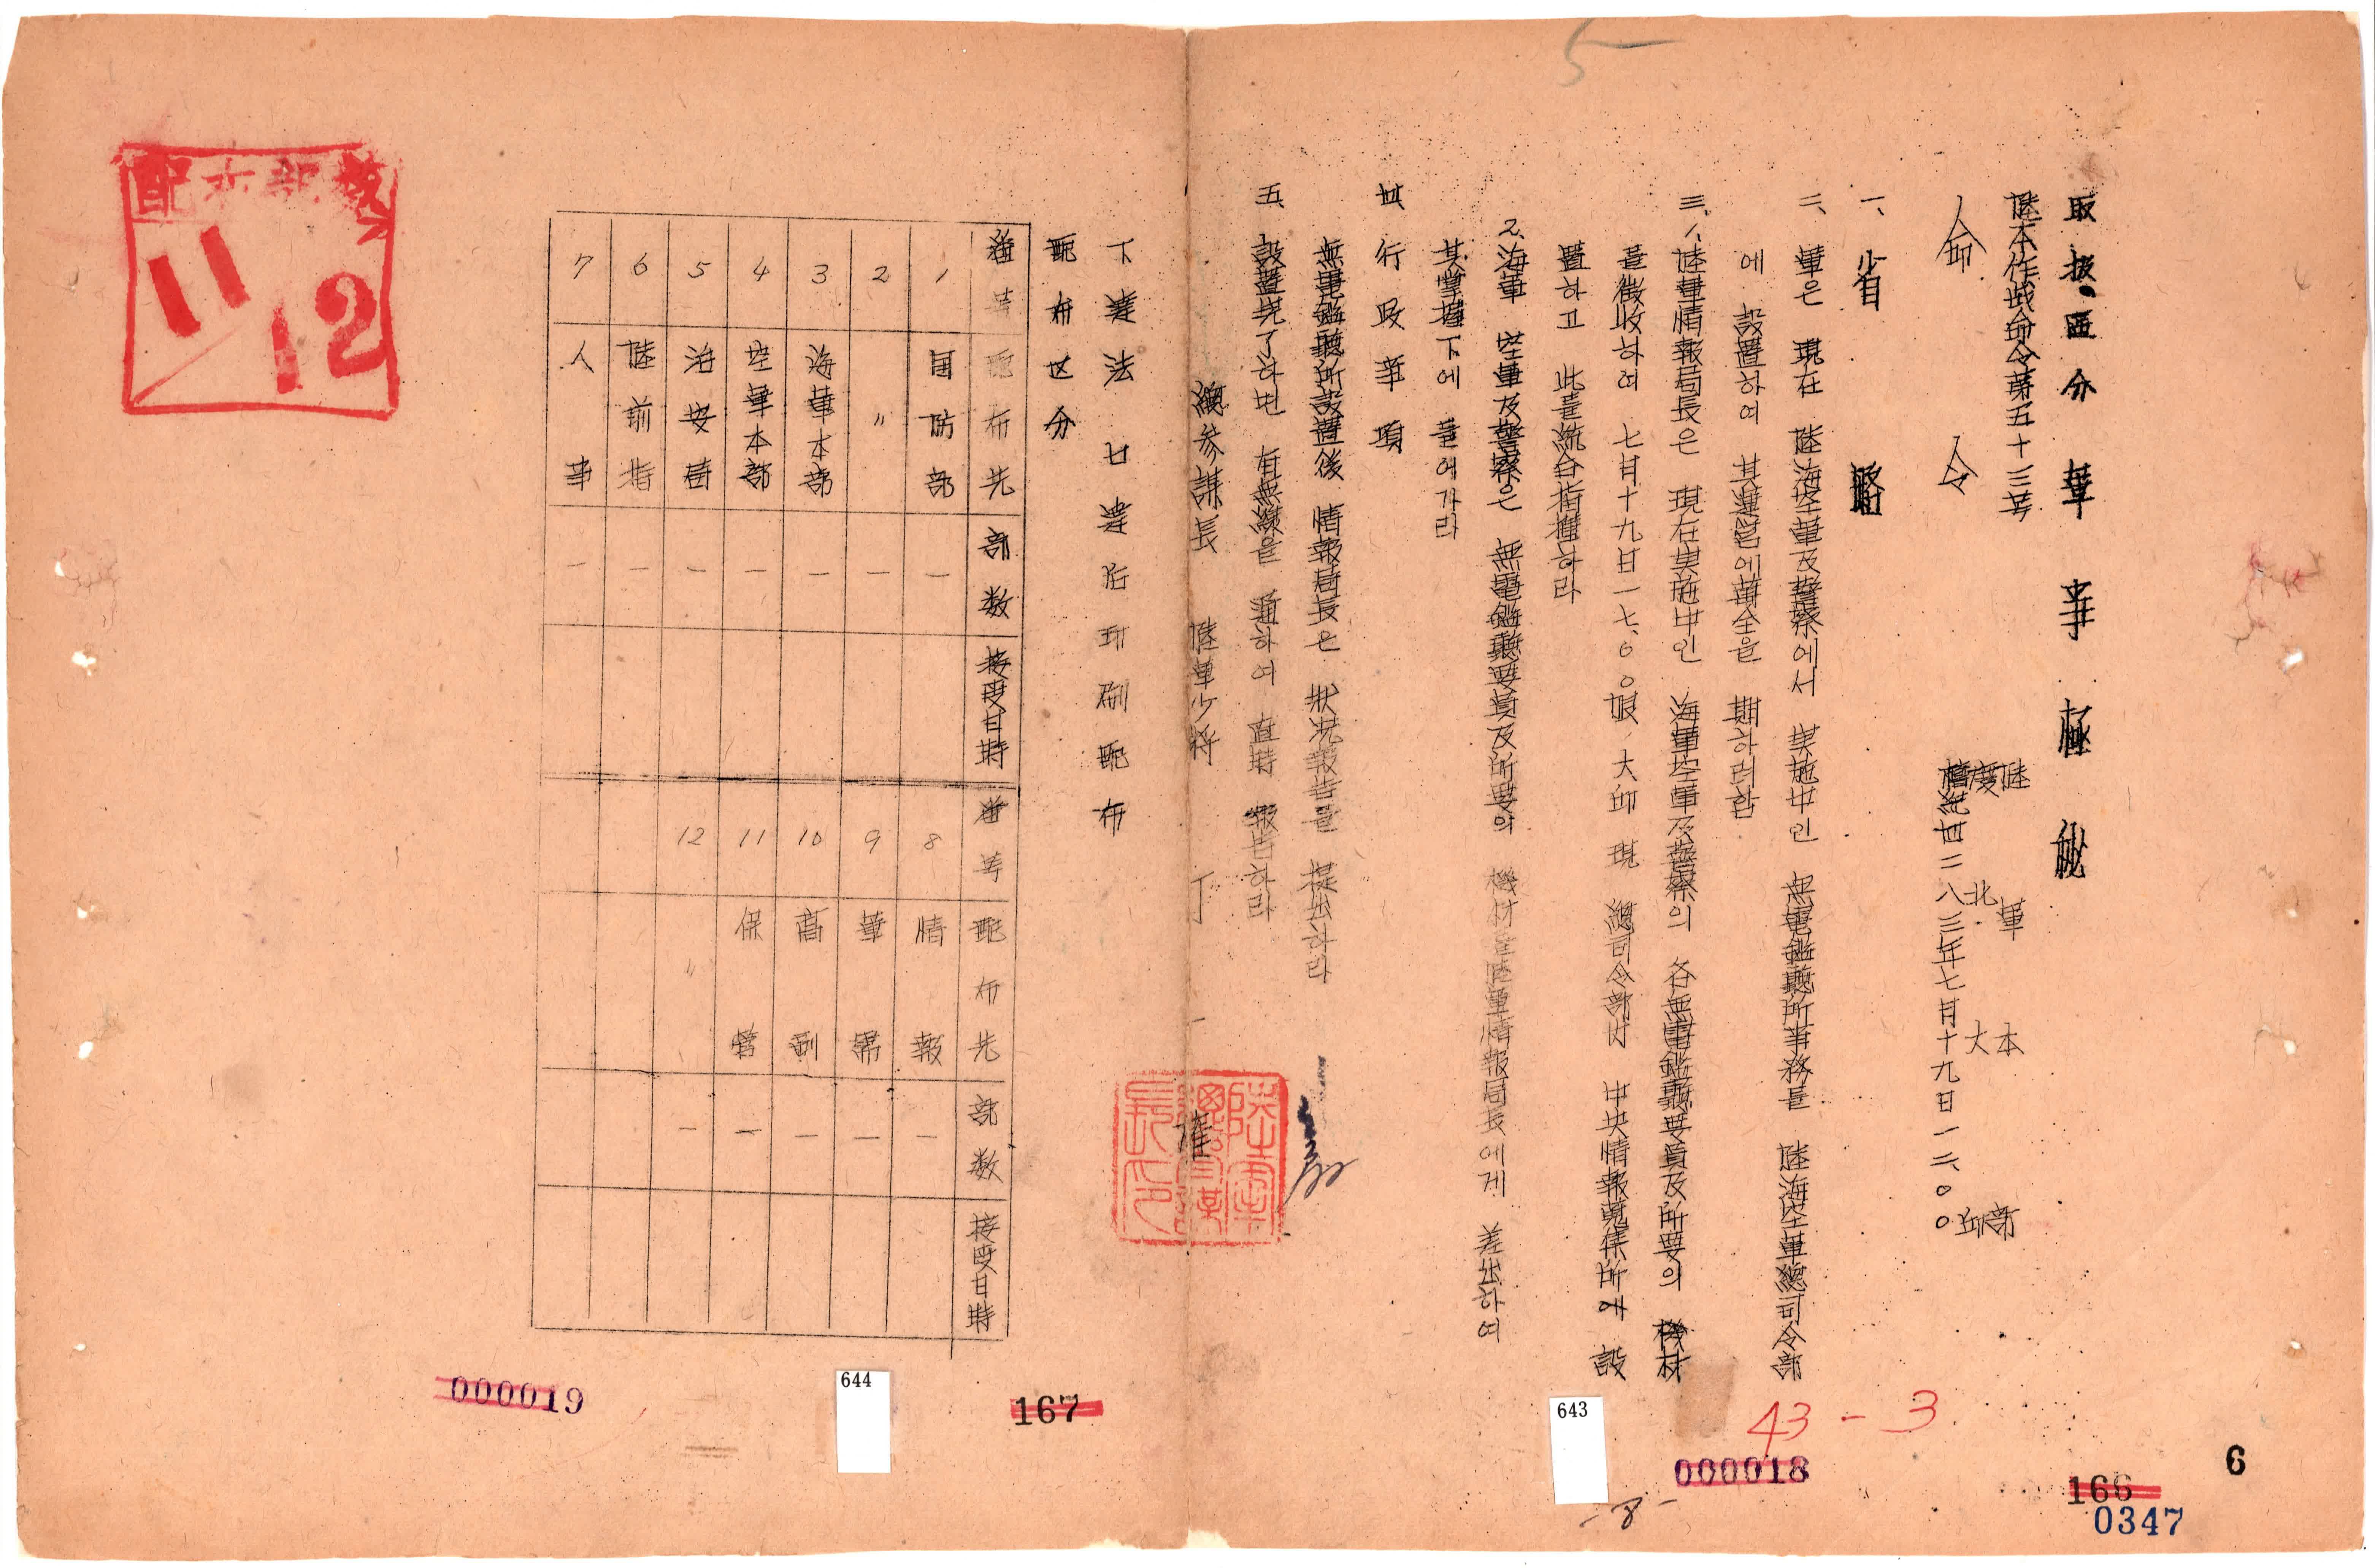 5
取扱區分 軍事極秘
陸本作戰命令第五十三号
陸軍本部
慶北大邱
檀紀四二八三年七月十九日一二、〇〇
命令
一、省略
二、軍은 現在 陸海空軍及警察에서 実施中인 無電鑑聽所事務를 陸海空軍總司令部
에 設置하여 其運営에萬全을 期하려함
三、1、陸軍情報局長은 現在実施中인 海軍空軍及警察의 各無電鑑聽要員及所要의 機材
를徵收하여 七月十九日一七、〇〇限 大邱 現 總司令部 中央情報蒐集所에 設
置하고 此를統合指揮하라
2、海軍 空軍及警察은 無電鑑聽要員及所要의 機材를陸軍情報局長에게 差出하여
其掌握下에 들어가라
四、行政事項
無電鑑聽所設置後 情報局長은 狀況報告를 提出하라
五、設置完了하면 有無線을 通하여 直時 報告하라
總參謀長 陸軍少將 丁 一 權
下達法 廿達后印刷配布
配布区分
番号 配布先 部数 接受日時 番号 配布先 部数 接受日時
1 国防部 一 8 情報 一
2 〃 一 9 軍需 一
3 海軍本部 一 10 高副 一
4 空軍本部 一 11 保管 一
5 治安局 一 12 〃 一
6 陸前指 一
7 人事 一
配布部数
11/12
000019
644
167
643
43-3
000018
-8-
6
166
0347